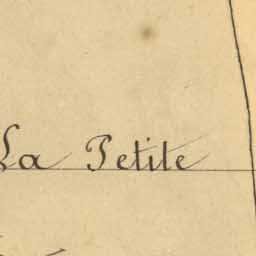 La Petite